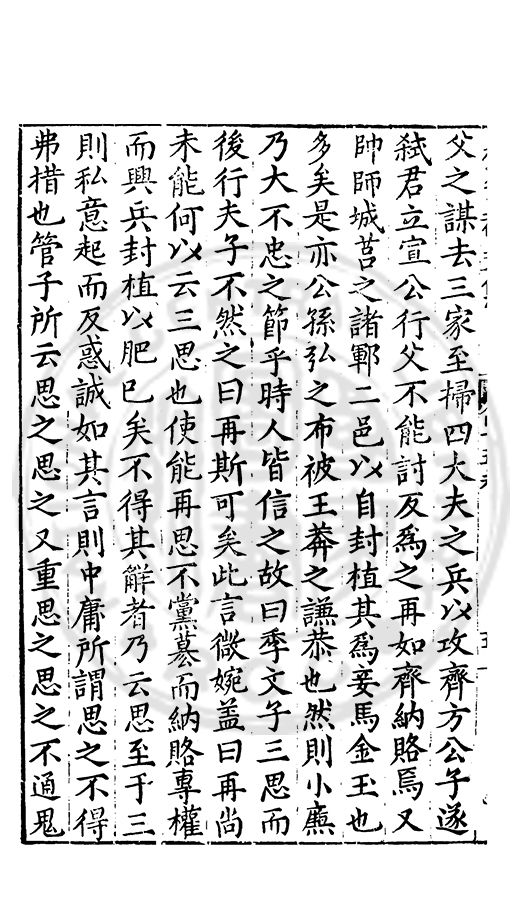 父之謀去三家至掃四大夫之兵以攻齊方公子遂
弑君立宣公行父不能討反爲之再如齊納賂焉又
帥師城莒之諸鄆二邑以自封植其爲妾馬金玉也
多矣是亦公孫弘之布被王莽之謙恭也然則小廉
乃大不忠之節乎時人皆信之故曰季文子三思而
後行夫子不然之曰再斯可矣此言微婉盖曰再尚
未能何以云三思也使能再思不黨簒而納賂專權
而興兵封植以肥已矣不得其解者乃云思至于三
則私意起而反惑誠如其言則中庸所謂思之不得
弗措也管子所云思之思之又重思之思之不通鬼